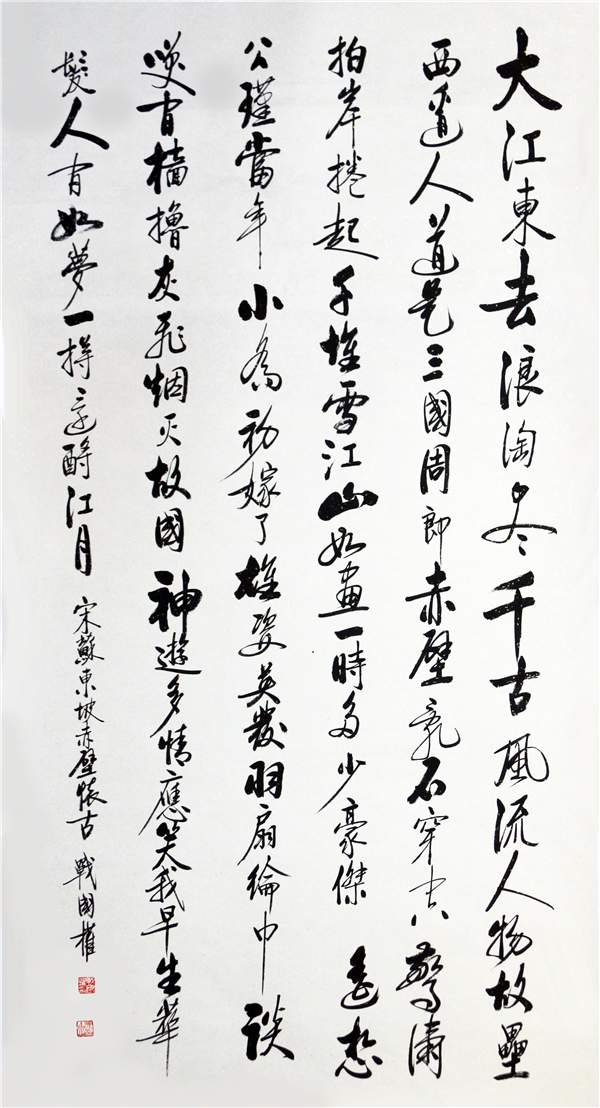 大江東去浪淘尽千古風流人物故壘
西邊人道是三國周郎赤壁乱石穿空驚濤
拍岸捲起千堆雪江山如畫一時多少豪傑遥想
公瑾當年小喬初嫁了雄姿英發羽扇綸巾談
笑间檣擼灰飛烟灭故國神遊多情應笑我早生華
髮人间如夢一樽還酹江月 宋蘇東坡赤壁懷古 戰國權